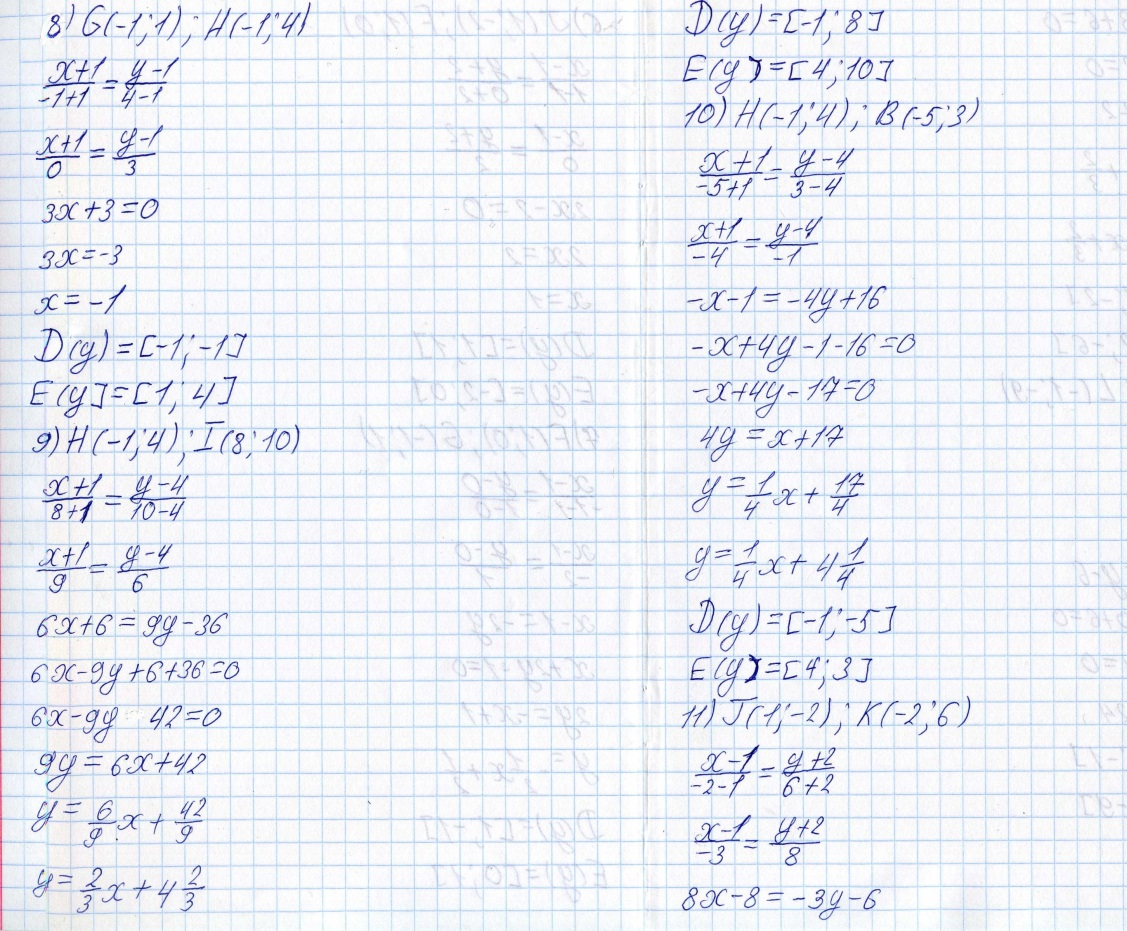 8) G(-1;1); H(-1;4)
x+1/-1+1 = y-1/4-1
x+1/0 = y-1/3
3x+3=0
3x=-3
x=-1
D(y)=[-1;-1]
E(y]=[1;4]
9) H(-1;4); I(8;10)
x+1/8+1 = y-4/10-4
x+1/9 = y-4/6
6x+6=9y-36
6x-9y+6+36=0
6x-9y 42=0
9y=6x+42
y=6/9x+42/9
y=2/3x+4 2/3
D(y)=[-1;8]
E(y)=[4;10]
10) H(-1;4); B(-5;3)
x+1/-5+1 = y-4/3-4
x+1/-4 = y-4/-1
-x-1=-4y+16
-x+4y-1-16=0
-x+4y-17=0
4y=x+17
y=1/4x+17/4
y=1/4x+4 1/4
D(y)=[-1;-5]
E(y)=[4;3]
11) J(1;-2); K(-2;6)
x-1/-2-1 = y+2/6+2
x-1/-3 = y+2/8
8x-8=-3y-6